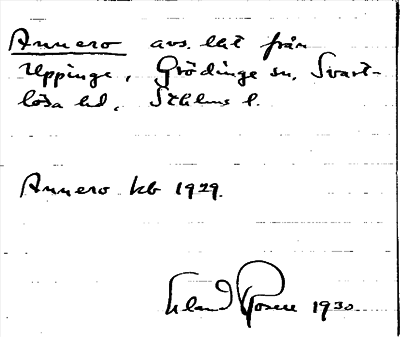 Annero avs. lht från
Uppinge, Grödinge sn, Svart-
lösa hd, Sthlms l.
Annero kb 1929.
Erland Rosell 1930